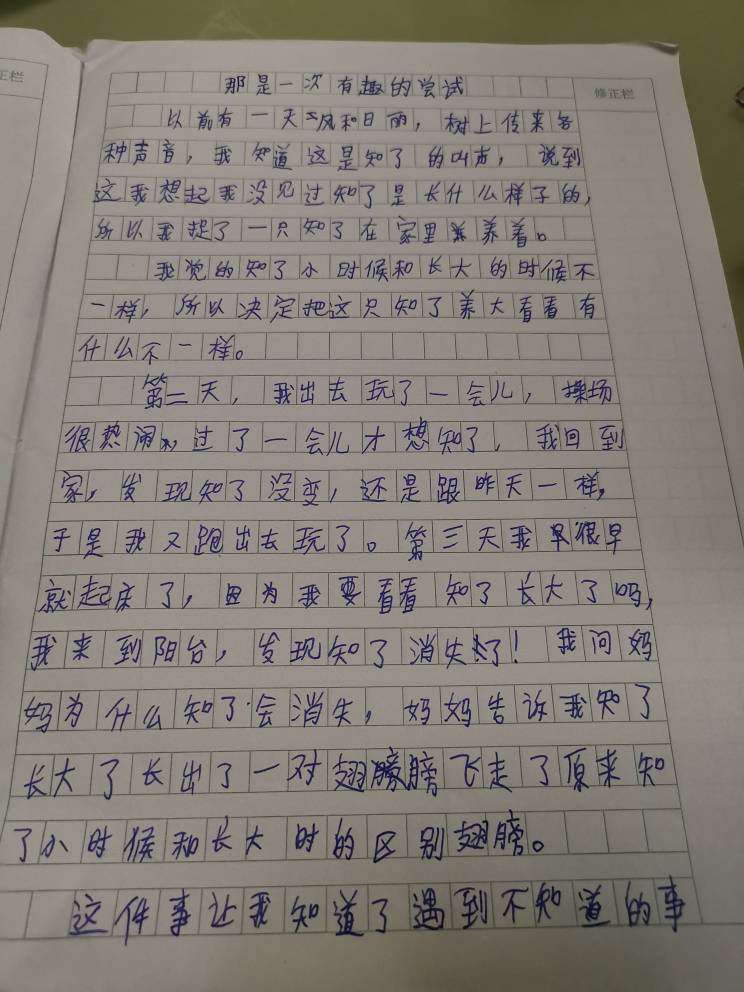 正栏
修正栏
那是一次有趣的尝试
以前有一天风和日丽，树上传来各
种声音，我知道这是知了的叫声，说到
这我想起我没见过知了是长什么样子的，
所以我捉了一只知了在家里养着。
我觉的知了小时候和长大的时候不
一样，所以决定把这只知了养大看看有
什么不一样。
第二天，我出去玩了一会儿，操场
很热闹，过了一会儿才想知了，我回到
家，发现知了没变，还是跟昨天一样，
于是我又跑出去玩了。第三天我早很早
就起床了，因为我要看看知了长大了吗，
我来到阳台，发现知了消失了！我问妈
妈为什么知了会消失，妈妈告诉我知了
长大了长出了一对翅膀飞走了原来知
了小时候和长大时的区别翅膀。
这件事让我知道了遇到不知道的事